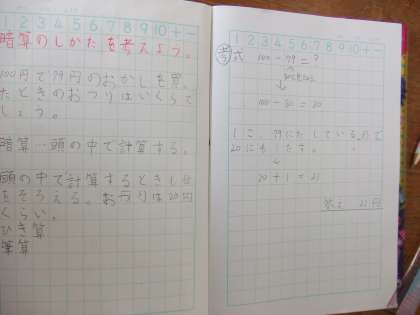 1 2 3 4 5 6 7 8 9 10 + −
暗算のしかたを考えよう。
100円で79円のおかしを買っ
たときのおつりはいくらで
しょう。
暗算…頭の中で計算する。
頭の中で計算するとき
をそろえる。おつりは20円
くらい。
ひき算
筆算
1 2 3 4 5 6 7 8 9 10 + −
考 式 100 − 79 = ?
↓
100 − 80 = 20
20にもたす。
↓
20 + 1 = 21
答え 21円